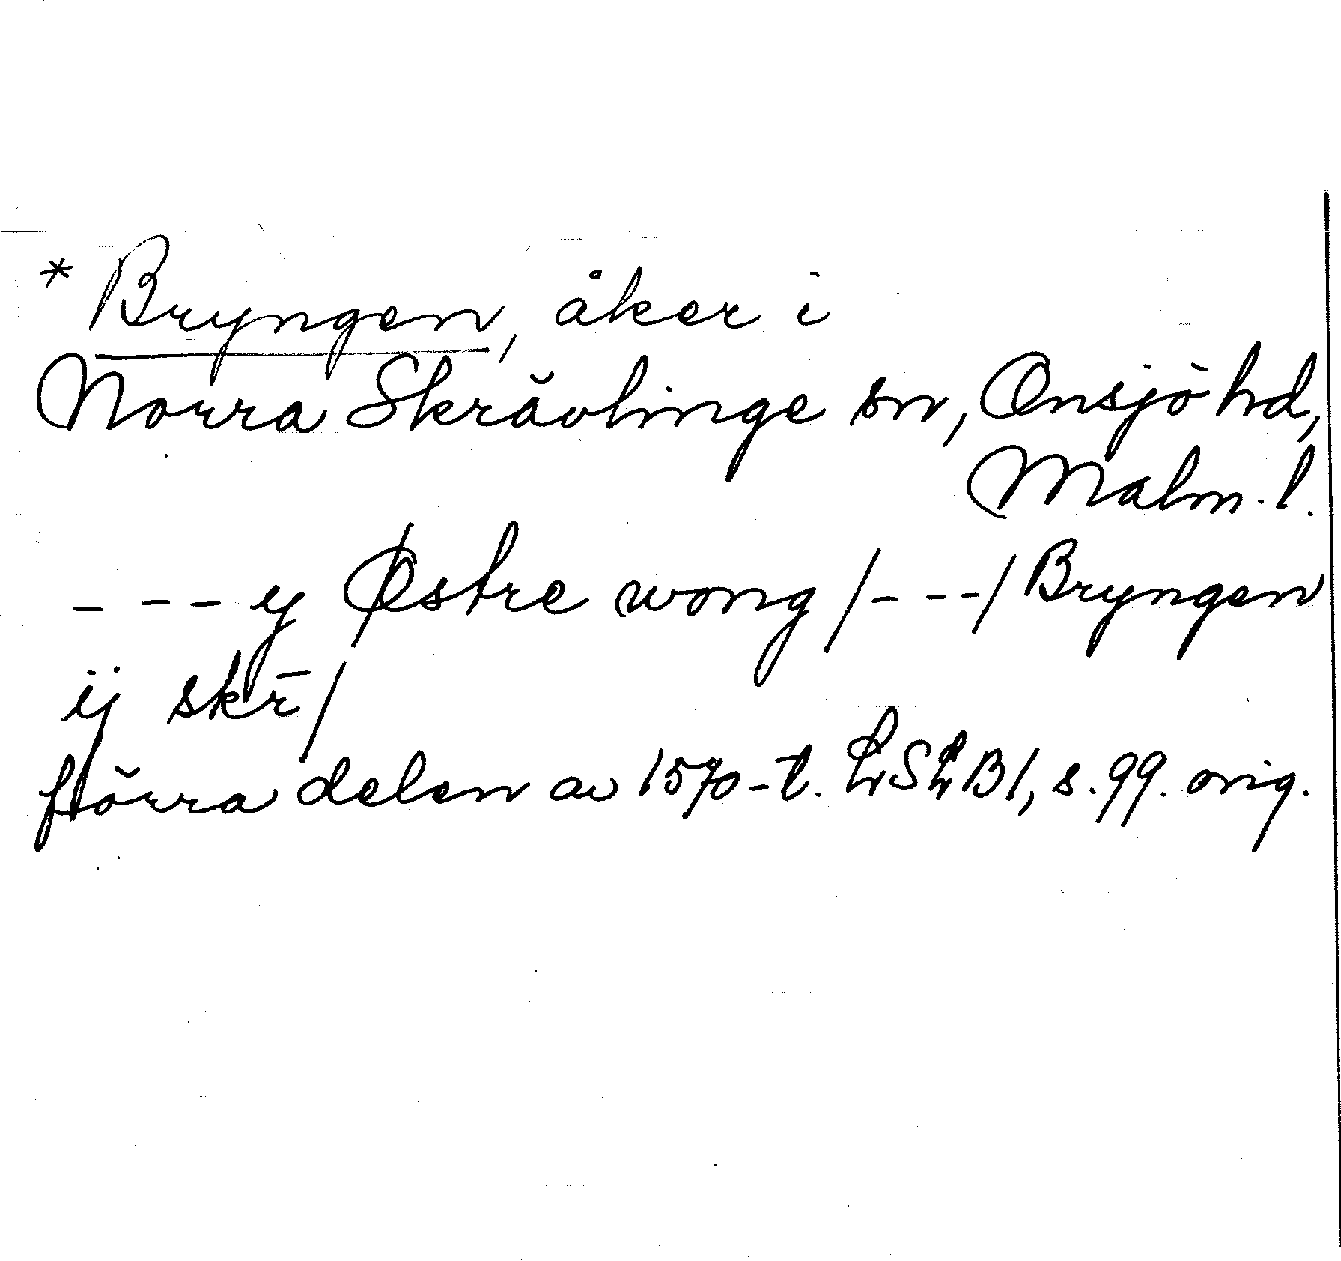 * Bryngen, åker i
Norra Skrävlinge sn, Onsjö hd,
Malm. l.
- - - y Østre wong / - - - / Bryngen
ij skr̄ /
förra delen av 1570-t. LSLB1, s. 99. orig.